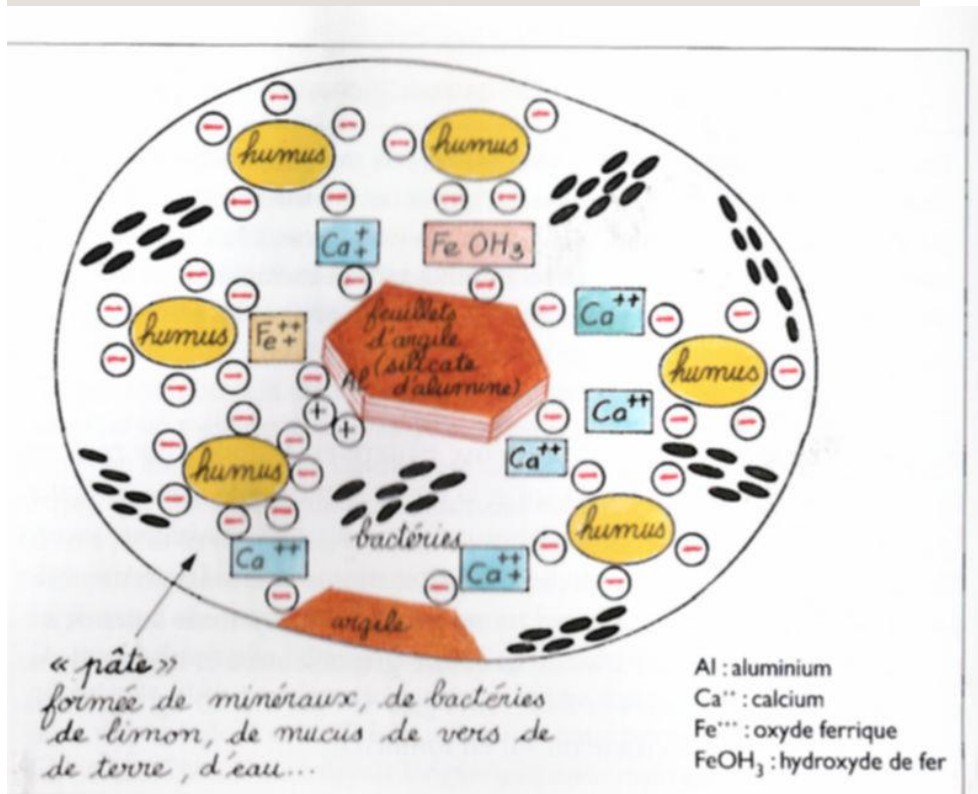 humus
humus
Ca++
Fe OH₃
feuillets
d'argile
(silicate
d'alumine)
Al
humus
Fe+++
Ca++
humus
Ca++
humus
Ca++
bactéries
humus
Ca++
Ca+++
argile
« pâte »
formée de minéraux, de bactéries
de limon, de mucus de vers de
de terre, d'eau...
Al : aluminium
Ca⁺⁺ : calcium
Fe⁺⁺⁺ : oxyde ferrique
FeOH₃ : hydroxyde de fer